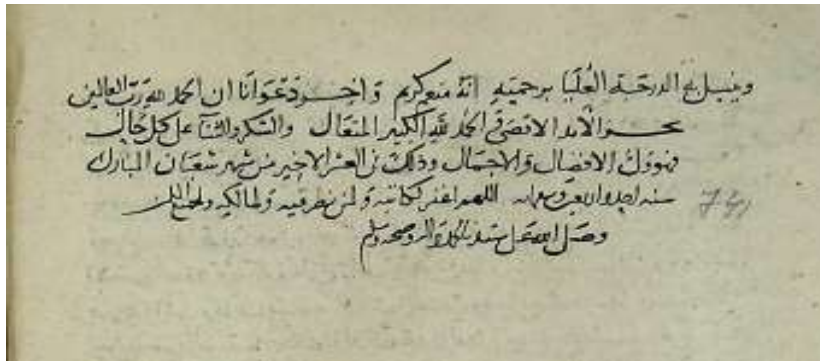 وينيل به الدرجة العُليا برحمته انه منعم كريم وَآخر دَعْوَانا ان الحمد لله رَبّ العالمين
الحمد لله الكبير المتعال والشكر والثناء على كل حال
الافضال والاجمال وذلك في العشر الاخير من شهر شعبان المبارك
سنه احدى واربعين وسبعمايه اللهم اغفر لكاتبه ولمن نظر فيه ولمالكه
وصلى الله على سيدنا محمد واله وصحبه وسلم